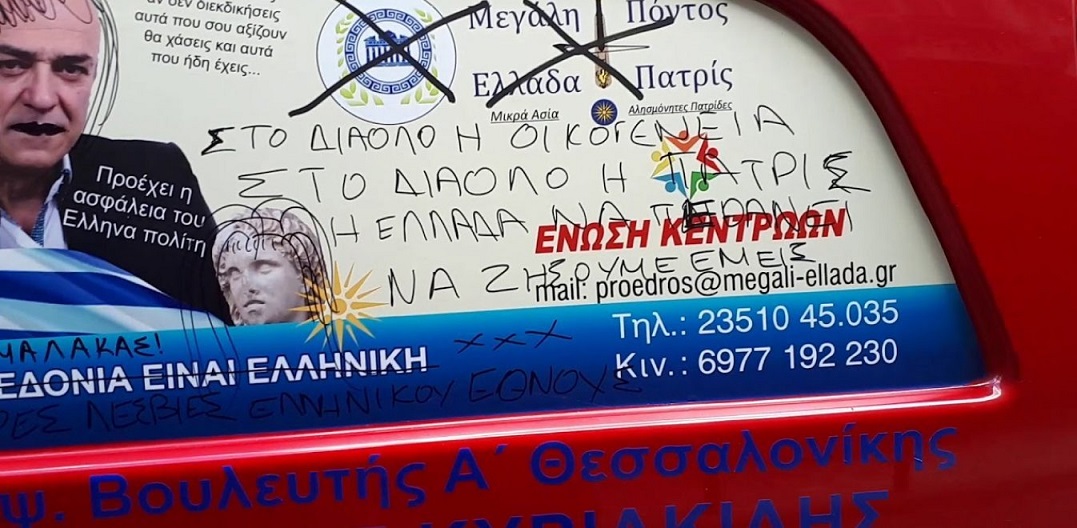 αν δεν διεκδικήσεις
αυτά που σου αξίζουν
θα χάσεις και αυτά
που ήδη έχεις...
Μεγάλη Πόντος
Ελλάδα Πατρίς
Μικρά Ασία Αλησμόνητες Πατρίδες
ΣΤΟ ΔΙΑΟΛΟ Η ΟΙΚΟΓΕΝΕΙΑ
ΣΤΟ ΔΙΑΟΛΟ Η ΠΑΤΡΙΣ
Η ΕΛΛΑΔΑ ΝΑ ΠΕΘΑΝΕΙ
ΝΑ ΖΗΣΟΥΜΕ ΕΜΕΙΣ
Προέχει η
ασφάλεια του
Έλληνα πολίτη
ΕΝΩΣΗ ΚΕΝΤΡΩΩΝ
mail: proedros@megali-ellada.gr
Τηλ.: 23510 45.035
Κιν.: 6977 192 230
ΜΑΛΑΚΑΣ!
ΕΔΟΝΙΑ ΕΙΝΑΙ ΕΛΛΗΝΙΚΗ XXX
ΛΕΣΒΙΕΣ ΕΛΛΗΝΙΚΟΥ
ψ. Βουλευτής Α΄ Θεσσαλονίκης
ΚΥΡΙΑΚΙΔΗΣ